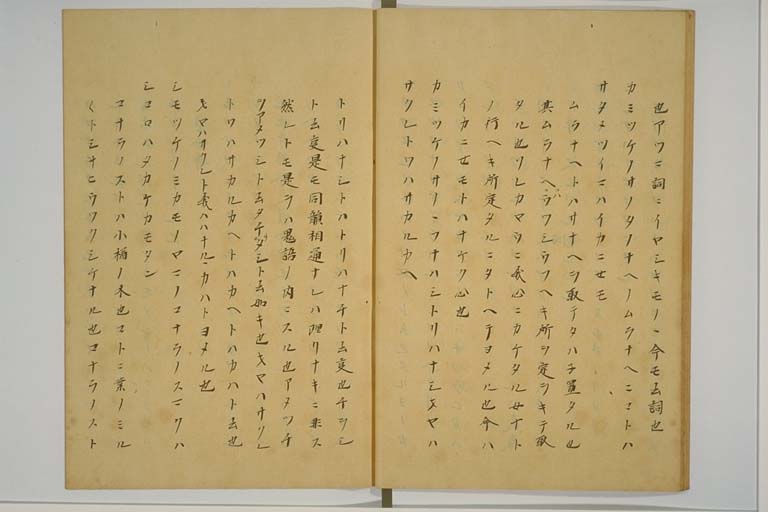 也アワニ詞ニイヤシキモノニ今モ云詞也
カミツケノサノタノナヘノムラナヘニコトハ
サタメツイマハイカニセモ
ムラナヘトハサナヘヲ取テタハネ置タル也
其ムラナヘヲウヘシウフヘキ所ヲ定ヲキテ
タル也ソレカヤウニ我心ニカケタル女ナト
ノ行ヘキ所定タルニタトヘテヨメル也今ハ
イカニセモトハナケク心也
カミツケノサノヽフナハシトリハナシヲヤハ
サクレトワハサカルカヘ
トリハナシトハトリハナチト云変也チヲシ
ト云変是モ同韻相通ナレハ理リナキニ非ス
然レトモ是ラハ鬼語ノ内ニスル也アメツチ
ヲアメツシト云タチヲタシト云如キ也ヲヤハサクレ
トワハサカルカヘトハカヘトハカハト云也
ヲヤハサクレト我ハハナルヽカハトヨメル也
シモツケノミカモノヤマノコナラノスマクハ
シコロハタカケカモタン
コナラノストハ小楢ノ木也コトニ葉ノミル
クトシナニウツクシケナル也コナラノスト